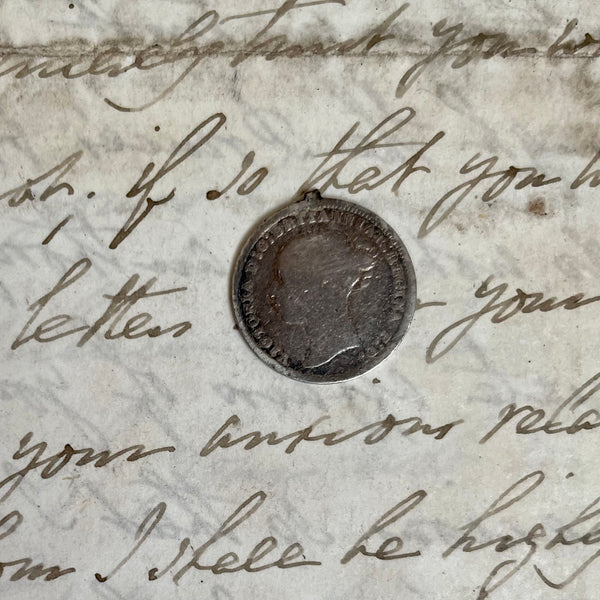 trust you w
if so that you
letters your
your anxious rela
I shall be highly
VICTORIA DEI GRATIA BRITANNIAR: REG: F:D: